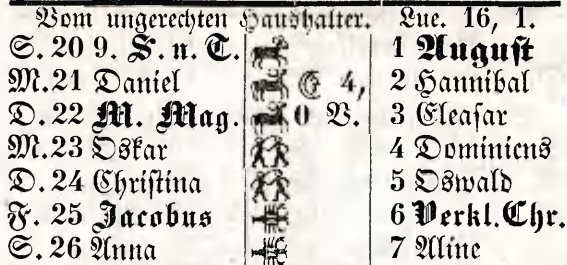 Vom ungerechten Haushalter. Luc. 16, 1.
S. 20 9. S. n. T. 1 August
M. 21 Daniel 4, 2 Hannibal
D. 22 M. Mag. 0 V. 3 Eleasar
M. 23 Oskar 4 Dominicus
D. 24 Christina 5 Oswald
F. 25 Jacobus 6 Verkl. Chr.
S. 26 Anna 7 Aline